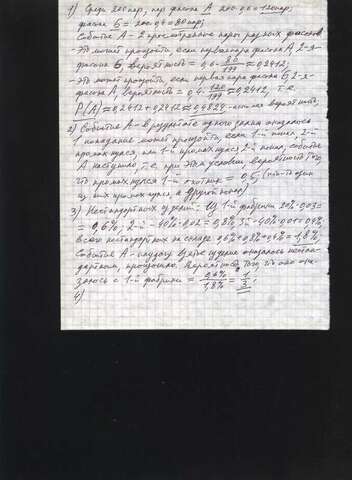 1) Среди 200 пар, пар фасона А 200·0,6=120 пар;
фасона Б = 200·0,4=80 пар;
Событие А - 2 просмотренные пары разных фасонов
- Это может произойти, если первая пара фасона А, 2-я -
фасона Б, вероятность = 0,6·80/199 ≈ 0,2412;
- это может произойти, если первая пара фасона Б, 2-я -
фасона А, вероятность = 0,4·120/199 ≈ 0,2412, т.е.
P(A) ≈ 0,2412+0,2412 ≈ 0,4824 -
2) Событие А - в результате одного оказалось
1 попадание может произойти, если 1-й попал, 2-й
промахнулся, или 1-й промахнулся, 2-й попал, событие
А наступило, т.е. при этом условии вероятность того,
что промахнулся 1-й охотник = 0,5 (
из них промахнулся, а другой попал)
3) Нестандартных изделий: Из 1-й фабрики 20%·0,03=
= 0,6%; 2-й - 40%·0,02=0,8%; 3й-40%·0,01=0,4%
всего нестандартных на складе 0,6%+0,8%+0,4%=1,8%
Событие А - наудачу взятое изделие оказалось нестан-
дартным, произошло. Вероятность того, что оно ока-
залось с 1-й фабрики = 0,6%/1,8% = 1/3.
4)